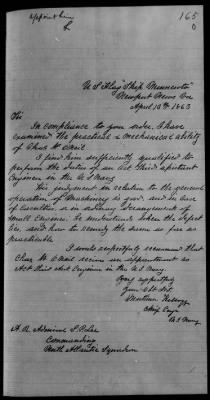 165
U S Flag Ship Minnesota
Newport News Va
April 10th 1863
Sir
In compliance to your order, I have
examined the practical & mechanical ability
of Chas W
I find him sufficiently qualified to
perform the duties of an Act Third Assistant
Engineer in the U S Navy
His judgment in relation to the general
operation of Machinery is good and in case
of in ordinary Derangement of
Small Engines. He understands where the defect
lies, and how to remedy the same as far as
practicable
I would respectfully recommend that
Chas W receive an appointment as
Act Third Asst Engineer in the U S Navy
Very respectfully
Your Obt Svt
Chief Eng
U S Navy
A. R. Admiral S. P. Lee
Commanding
North Atlantic Squadron